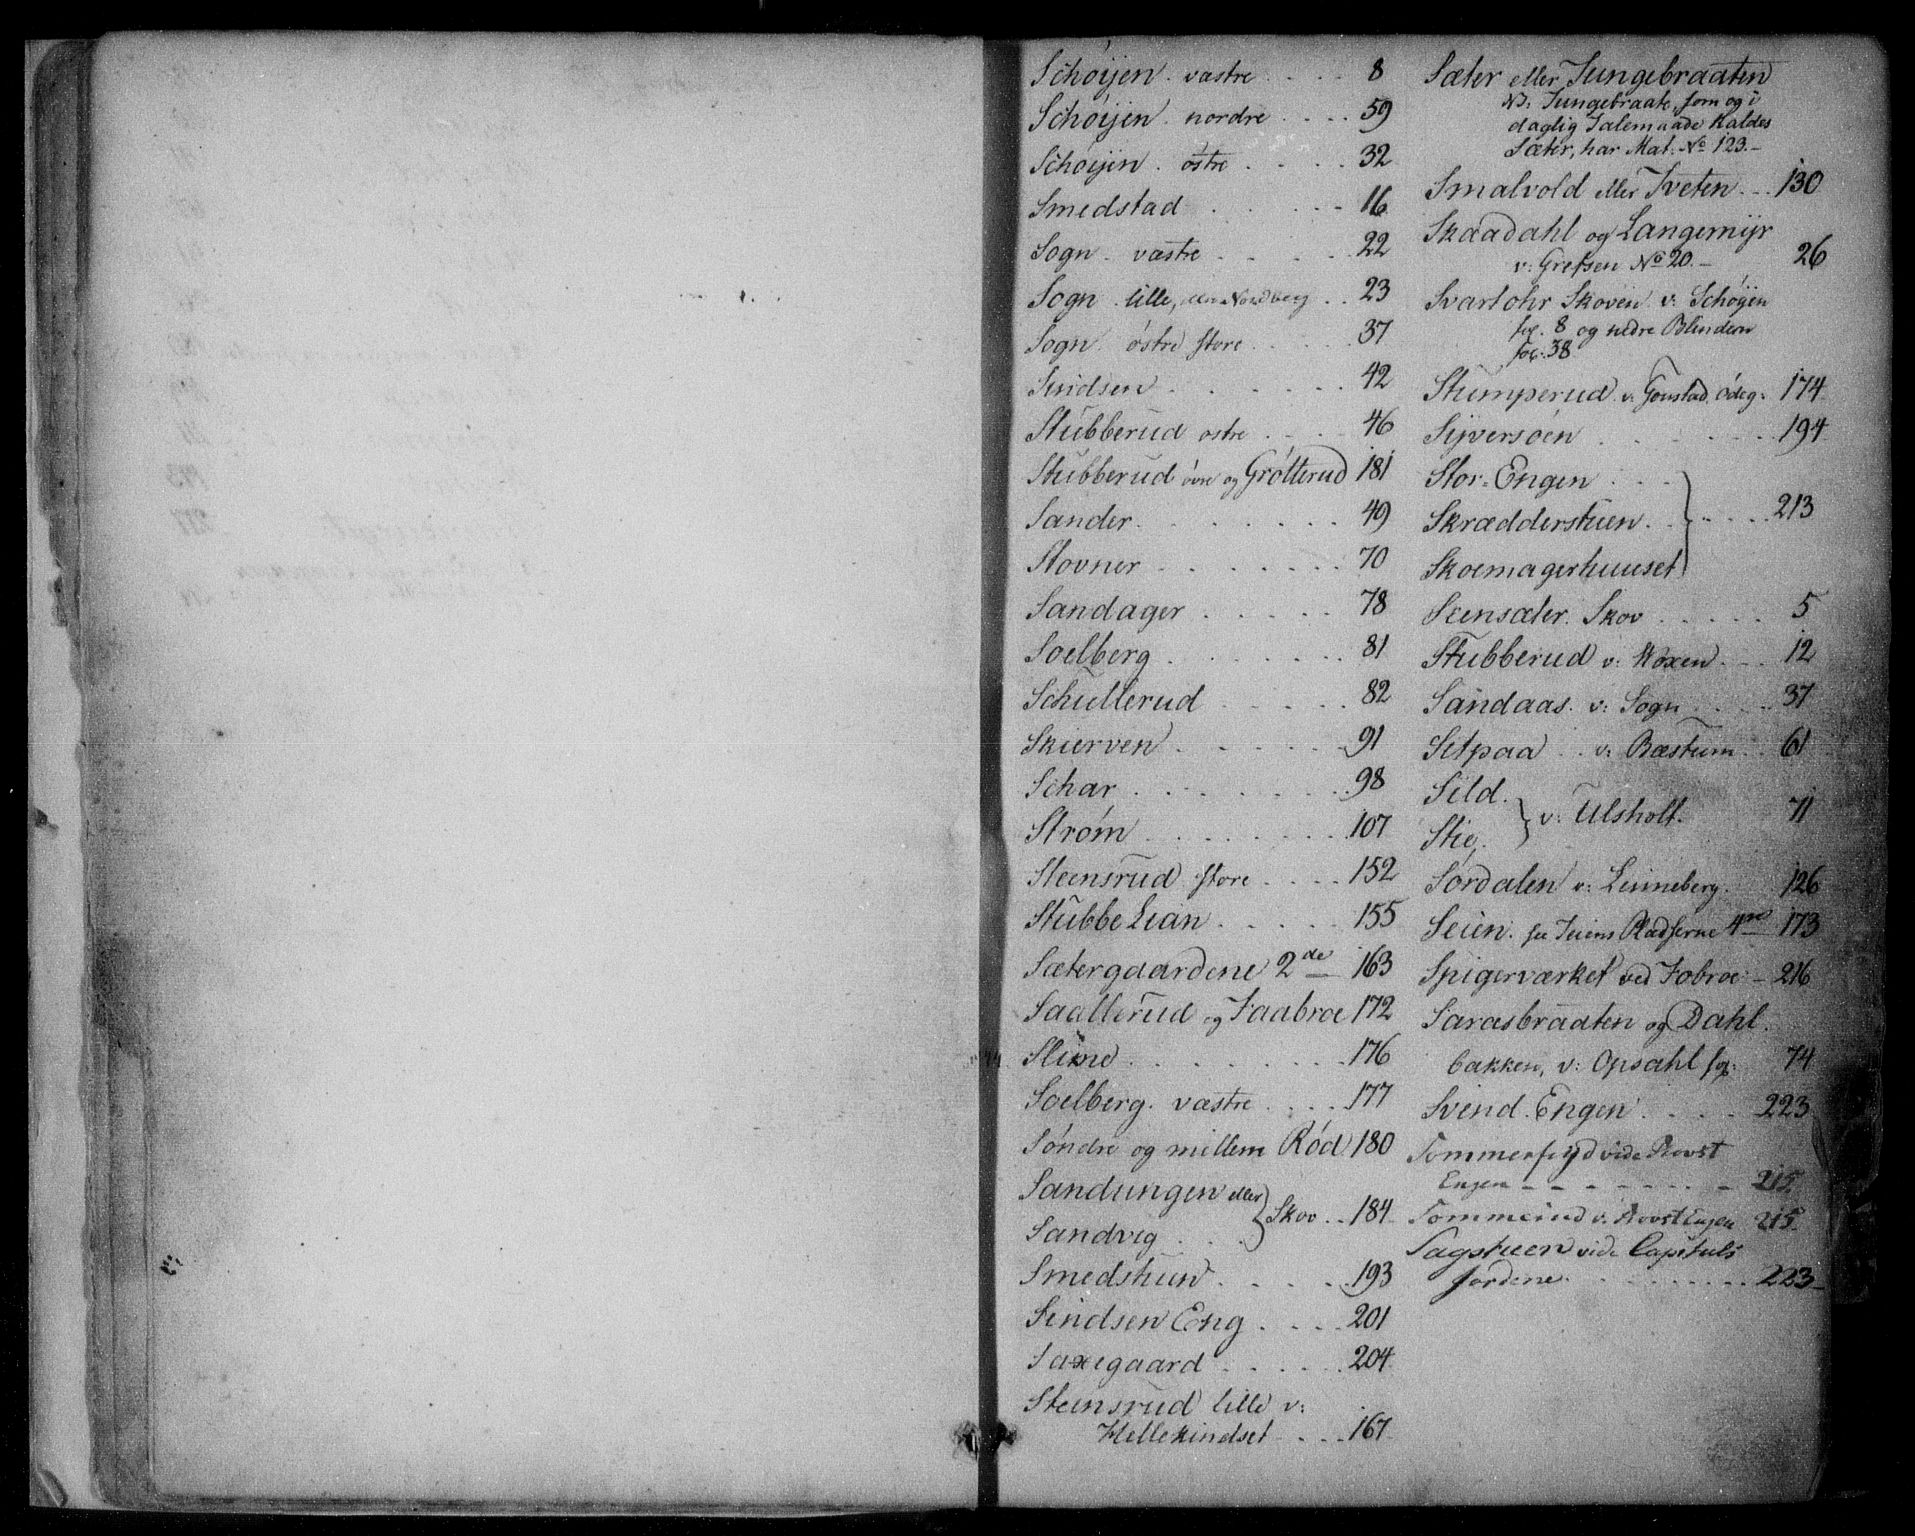 Schøijen væstre . . . . 8
Schøijen nordre . . . . 59
Schøijen østre . . . . 32
Smedstad . . . . . 16
Sogn væstre . . . . . 22
Sogn lille, eller Nordberg . . 23
Sogn østre store . . . . . 37
Sindsen . . . . . . 42
Stubberud østre . . . . 46
Stubberud øvre og Grøtterud 181
Sander . . . . . . . 49
Stovner . . . . . . . 70
Sandager . . . . . 78
Soelberg . . . . . . 81
Schullerud . . . . . 82
Skierven . . . . . 91
Schar . . . . . . . 98
Strøm . . . . . . . 107
Steensrud store . . . . 152
Stubbe Lian . . . . . 155
Sætergaardene 2de 163
Saallerud og Taabroe 172
Slime . . . . . . . 176
Soelberg. væstre . . . . 177
Søndre og millem Rød 180
Sandungen eller
Sandvig . . . } Skov . . 184
Smedstuen . . . . . 193
Sindsen Eng . . . . 201
Saxegaard . . . . . 204
Steensrud lille v:
Hellerindset . . . 167
Sæter eller Tungebraaten
NB: Tungebraate, som og i
daglig Talemaade kaldes
Sæter, har Mat: No 123.-
Smalvold eller Tveten . . . 130
Skaadahl og Langemijr
v: Grefsen No 20.- 26
Svartohr Skoven v: Schøyen
fog. 8 og nedre Blindern
fog: 38
Stumperud v: Gonstad Ødeg: 174
Sijversøen . . . . . . 194
Stor-Engen . . .
Skrædderstuen . . } . . . . 213
Skoemagerhuuset
Steensæter Skov . . . . . 5
Stubberud v: Voxen . . . 12
Sandaas. v: Sogn . . . . 37
Setpaa . . v: Bæstum . . 61
Sild.
Stig. } v: Ulsholt. 71
Sørdalen v: Linneberg. 126
Seien. see Seiens Pladserne 4re 173
Spigerværket ved Fobroe - 216
Sarasbraaten og Dahl.
bakken, v: Opsahl fog: 74
Svend-Engen . . . . 223
Sommerfryd vide Provst
Engen - - - - - - - 215
Sommero v: Provst Engen 215
Sagstuen vide Capituls
Jordene . . . . . . . . 223